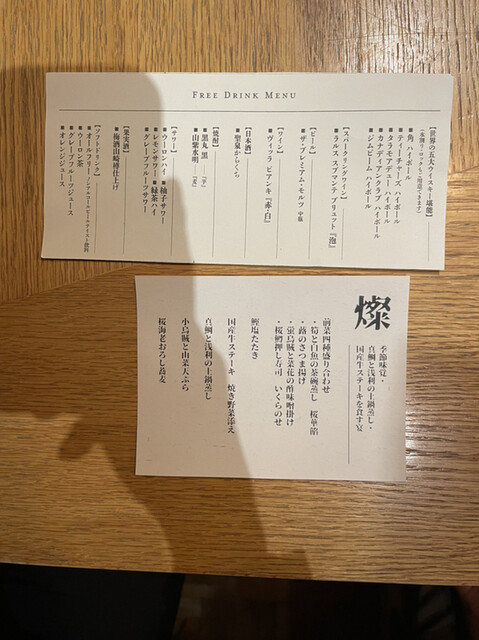 FREE DRINK MENU
【世界の五大ウイスキー堪能】
（水割り・ロックもご用意できます）
■ 角 ハイボール
■ ティーチャーズ ハイボール
■ タラモアデュー ハイボール
■ カナディアンクラブ ハイボール
■ ジムビーム ハイボール
【スパークリングワイン】
■ ラルス スアヴンテ ブリュット『泡』
【ビール】
■ ザ・プレミアム・モルツ 中瓶
【ワイン】
■ ヴィッラ ビアンキ『赤・白』
【日本酒】
■ 聖泉からくち
【焼酎】
■ 黒丸 黒 『芋』
■ 山紫水明 『麦』
【サワー】
■ ウーロンハイ ■ 柚子サワー
■ レモンサワー ■ 緑茶ハイ
■ グレープフルーツサワー
【果実酒】
■ 梅酒山崎樽仕上げ
【ソフトドリンク】
■ オールフリー（ノンアルコールビールテイスト飲料）
■ ウーロン茶
■ グレープフルーツジュース
■ オレンジジュース
燦
季節味覚・
真鯛と浅利の土鍋蒸し・
国産牛ステーキを食す宴
前菜四種盛り合わせ
・筍と白魚の茶碗蒸し 桜華餡
・蕗のさつま揚げ
・蛍烏賊と菜花の酢味噌掛け
・桜鱒押し寿司 いくらのせ
鰹塩たたき
国産牛ステーキ 焼き野菜添え
真鯛と浅利の土鍋蒸し
小烏賊と山菜天ぷら
桜海老おろし蕎麦